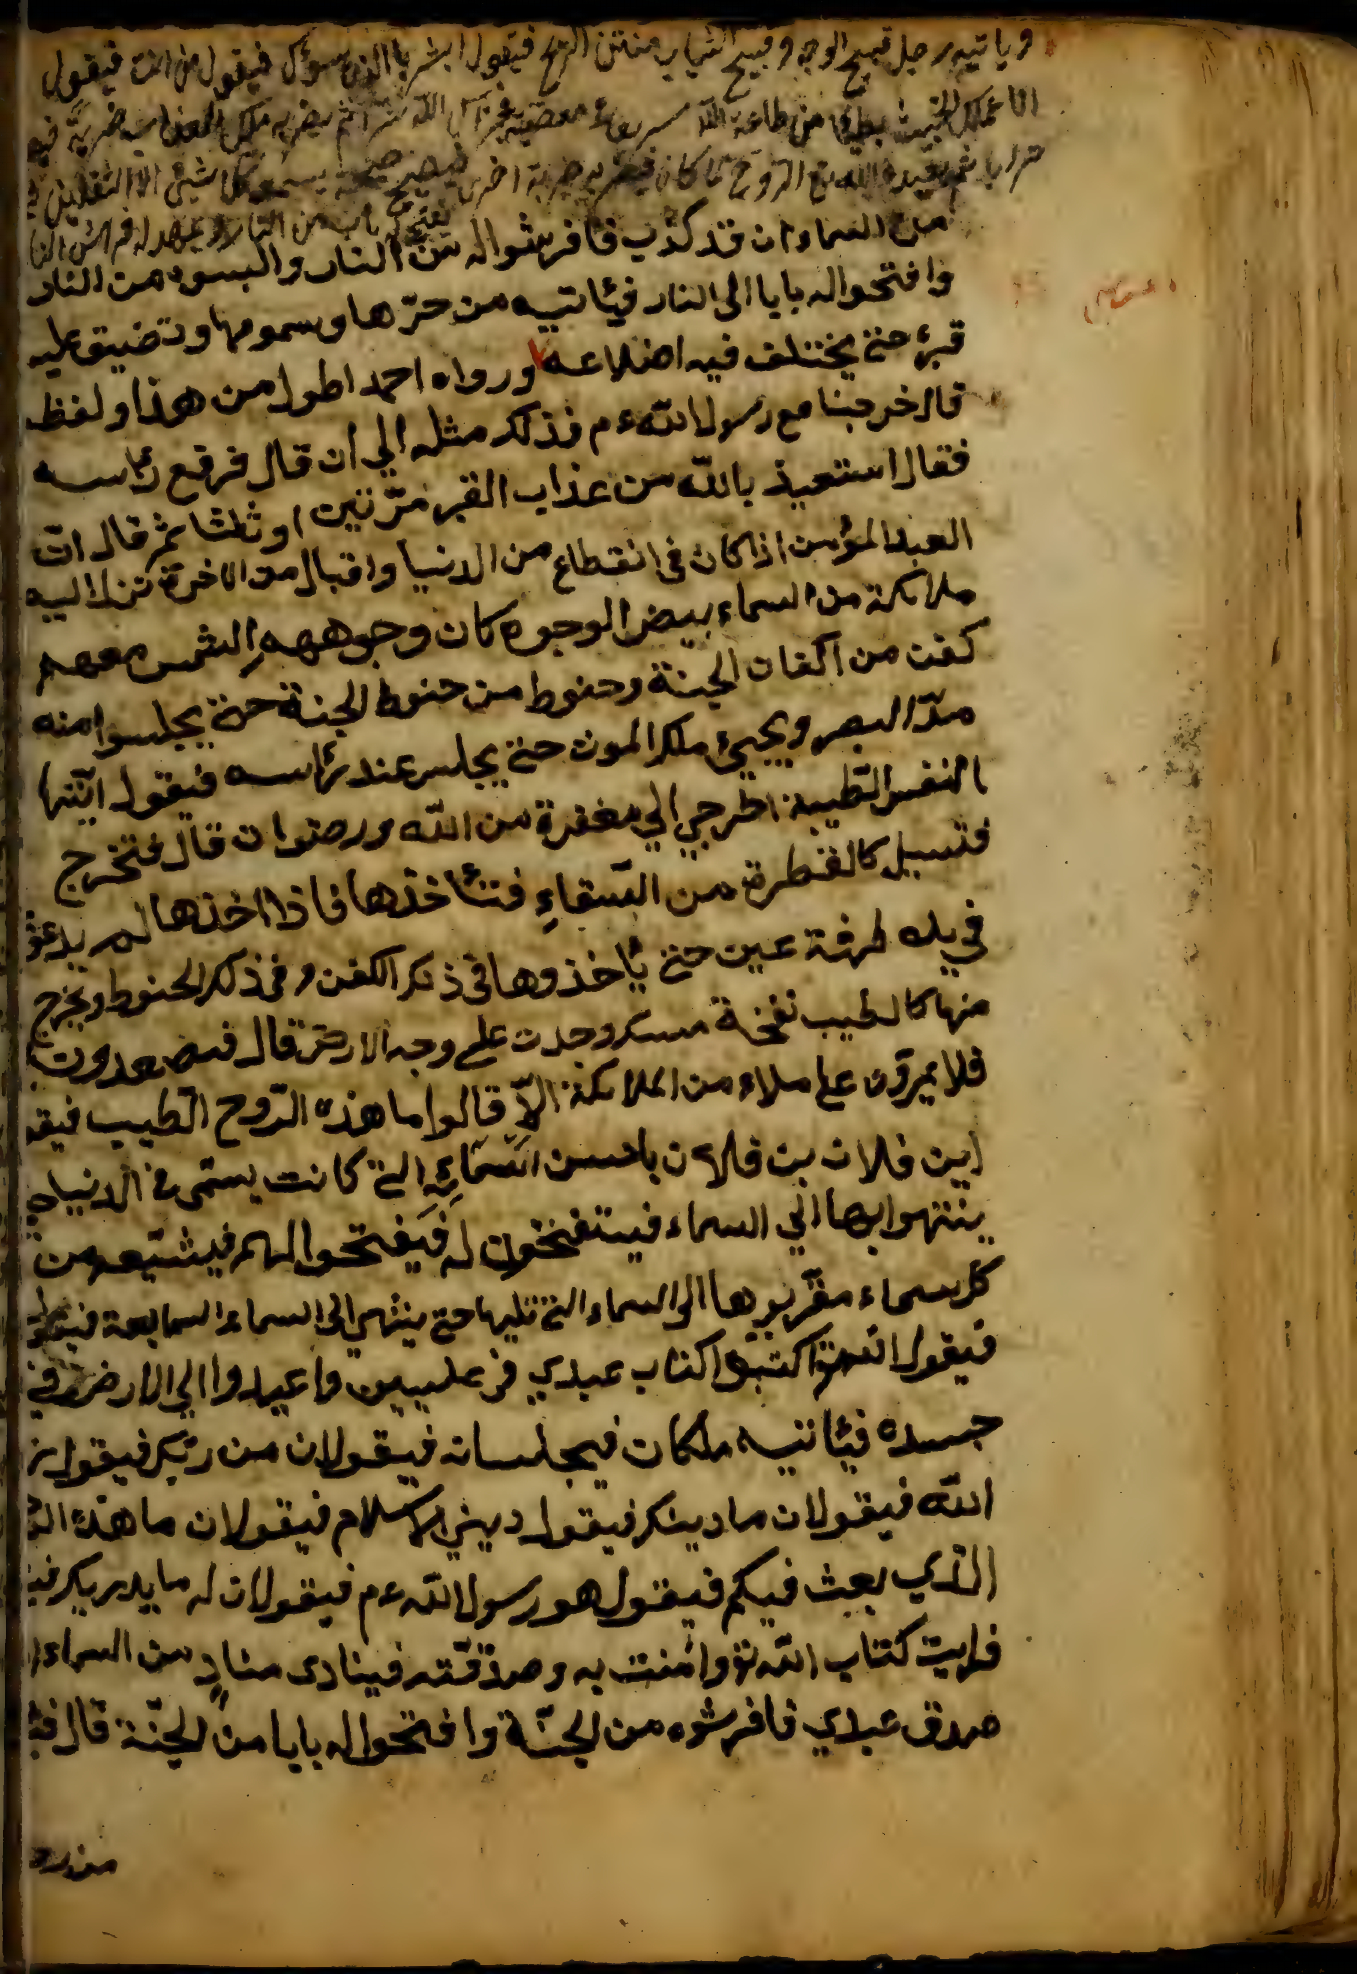 وياتيه رجل قبيح الوجه وقبيح الثياب منتن الريح فيقول ابشر بالذي يسؤك فيقول من انت فيقول
انا عملك الخبيث بطيئا من طاعة الله سريعا معصيته فجزاك الله شرا ثم يضربه ملك العذاب ضربة فيه
ترابا ثم يعيده الله مع الروح كما كان فيضربه ضربة اخرى فيصيح صيحة يسمعه كل شيئ الا الثقلين
يفتح له باب من النار ويمهد له فراش النا
من السماء ان قد كذب فافرشواله من النار والبسوه من النار
وافتحواله بابا الى النار فيئاتيه من حرّها وسمومها وتضيق عليه
قبره حتى يختلف فيه اضلاعه ورواه احمد اطول من هذا ولفظه
قال خرجنا مع رسول الله ءم فذكر مثله الي ان قال فرفع رئاسه
فقال استعيذ بالله من عذاب القبر مرّتين اوثلثا ثم قال ان
العبد المؤمن اذا كان في انقطاع من الدنيا واقبال من الاخرة تنزل اليه
ملائكة من السماء بيض الوجوه كان وجوههم الشمس معهم
كفن من اكفان الجنة وحنوط من حنوط الجنة حتى يجلسوا منه
مدّ البصر ويجيئ ملك الموت حتى يجلس عند رئاسه فيقول ايّتها
النفس الطيبة اخرجي الي مغفرة من الله ورضوان قال فتخرج
فتسيل كالقطرة من السّقاءِ فتئاخذها فاذا اخذها لم يدعو
في يده طرفة عين حتى يئاخذوها في ذلك الكفن وفي ذلك الحنوط ويخرج
منها كالطيب نفخة مسك وجدت على وجه الارض قال فيصعدون
فلا يمرّون على ملاء من الملائكة الاّ قالوا ما هذه الرّوح الطيب فيقو
اين فلان بن فلان باحسن اسمائه التي كانت يسمى في الدنيا
ينتهوا بها الي السماء فيستفتحون له فيفتحوا لهم فيشيّعه من
كل سماء مقرّبوها الى السماء التي تليها حتى ينتهي الى السماء السابعة
فيقول الله اكتبوا كتاب عبدي في عليين واعيدوا الي الارض في
جسده فيئاتيه ملكان فيجلسانه فيقولان من ربّك فيقول
الله فيقولان ما دينك فيقول ديني الاسلام فيقولان ما هذا
الذي بعث فيكم فيقول هو رسول الله ءم فيقولان له ما يدريك
قرايت كتاب الله وامنت به وصدّقته فينادى منادٍ من السماء
صدق عبدي فافرشوه من الجنّة وافتحواله بابا من الجنّة قال